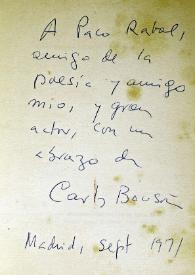 A Paco Rabal,
amigo de la
poesía y amigo
mío, y gran
actor, con un
abrazo de
Carlos Bousoño
Madrid, sept 1971